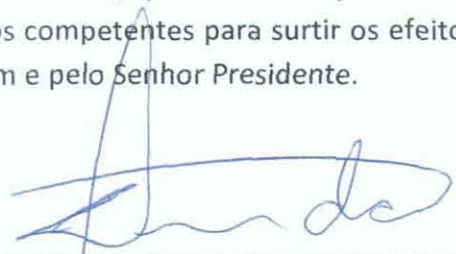 os competentes para surtir os efeito
m e pelo Senhor Presidente.